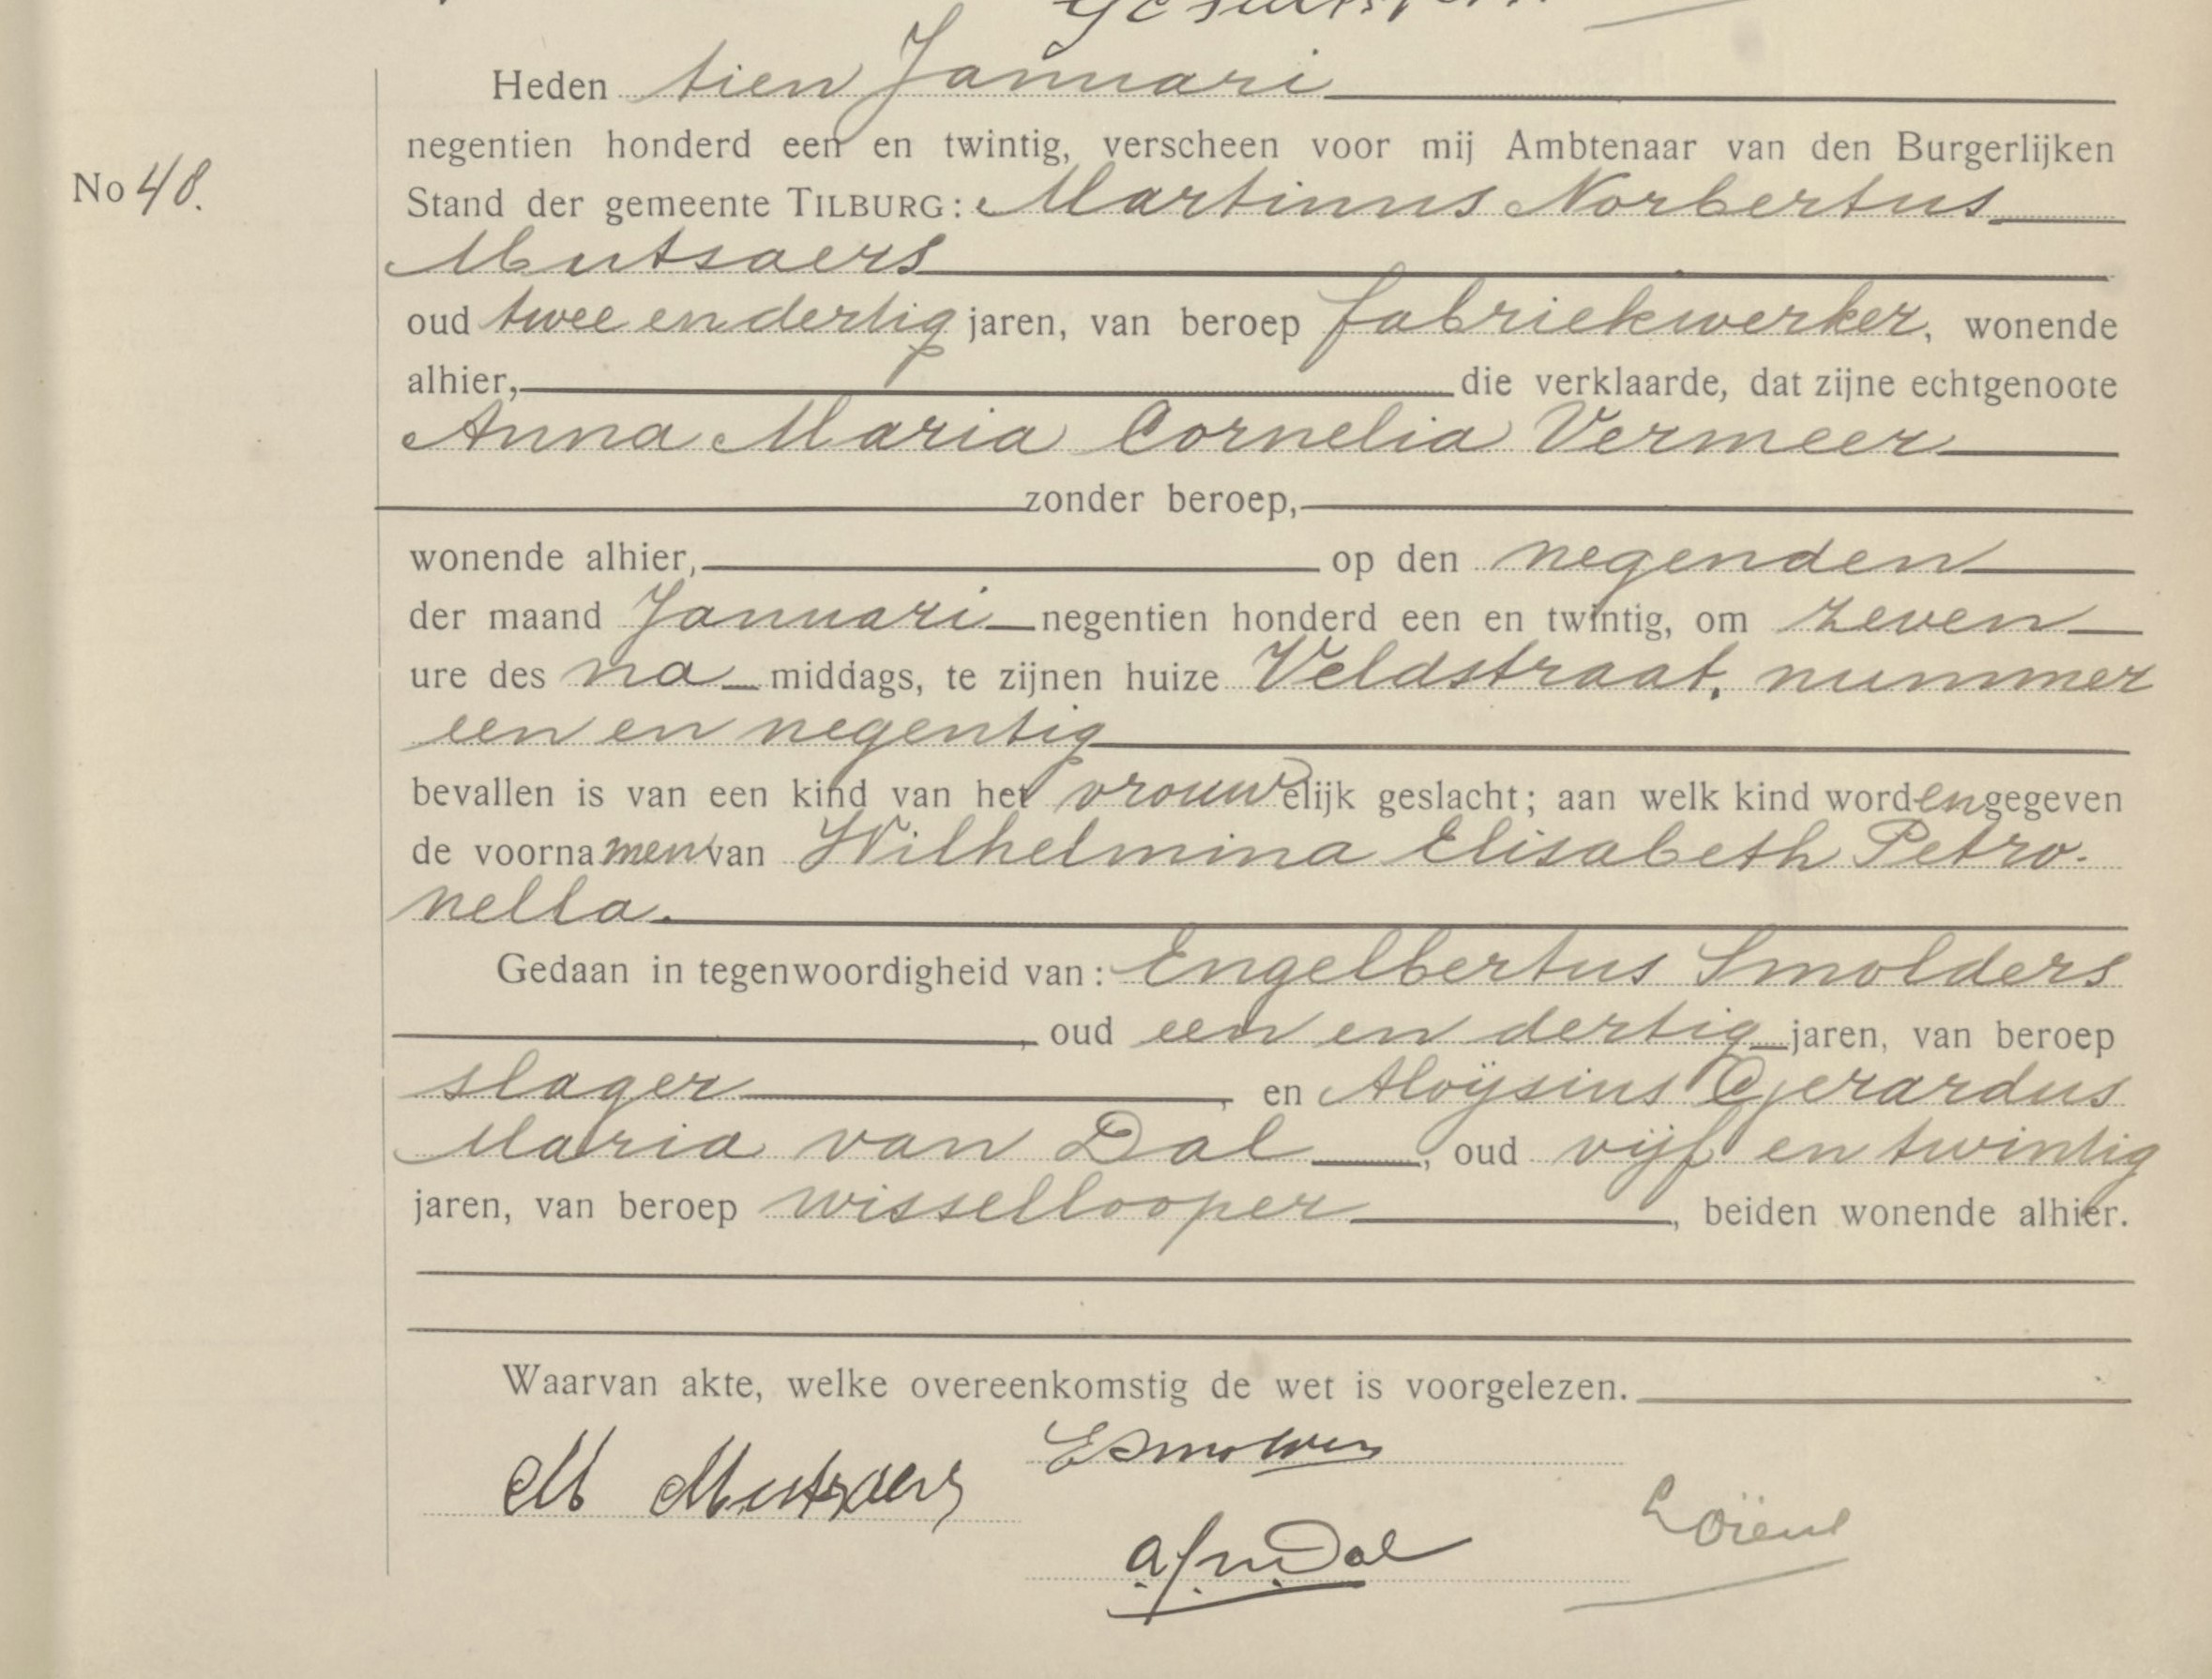 Heden tien Januari
negentien honderd een en twintig, verscheen voor mij Ambtenaar van den Burgerlijken
No 48.
Stand der gemeente TILBURG: Martinus Norbertus
Mutsaers
oud twee en dertig jaren, van beroep fabriekwerker, wonende
alhier, die verklaarde, dat zijne echtgenoote
Anna Maria Cornelia Vermeer
zonder beroep,
wonende alhier, op den negenden
der maand Januari negentien honderd een en twintig, om zeven
ure des na middags, te zijnen huize Veldstraat, nummer
een en negentig
bevallen is van een kind van het vrouwelijk geslacht; aan welk kind worden gegeven
de voornamen van Wilhelmina Elisabeth Petro-
nella.
Gedaan in tegenwoordigheid van: Engelbertus Smolders
, oud een en dertig jaren, van beroep
slager, en Aloÿsius Gerardus
Maria van Dal, oud vijf en twintig
jaren, van beroep wissellooper, beiden wonende alhier.
Waarvan akte, welke overeenkomstig de wet is voorgelezen.
E Smolders
M Mutsaers
Dal